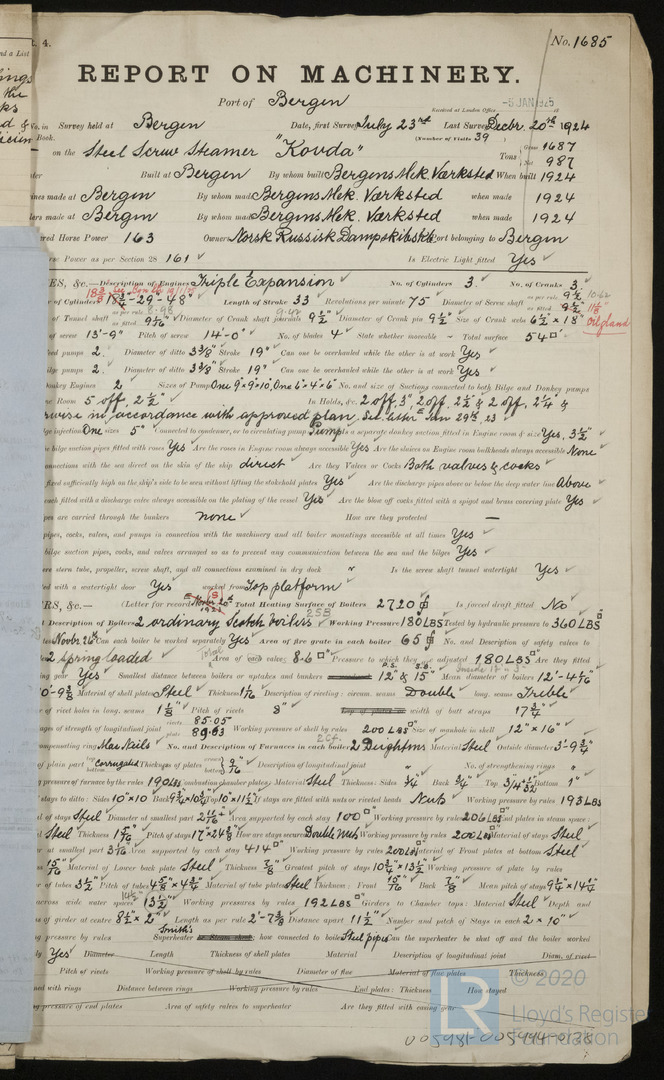 t. 4.
No. 1685
REPORT ON MACHINERY.
Port of Bergen
Received at London Office
No. in Survey held at Bergen Date, first Survey July 23rd Last Survey Decbr. 20th 1924
Book. (Number of Visits 39
on the Steel Screw Steamer "Kovda" Tons Gross 1687 Net 987
Built at Bergen By whom built Bergens Mek. Værksted When built 1924
ines made at Bergen By whom made Bergens Mek. Værksted when made 1924
lers made at Bergen By whom made Bergens Mek. Værksted when made 1924
red Horse Power 163 Owners Norsk Russisk Dampskibsskb Port belonging to Bergen
rse Power as per Section 28 161 Is Electric Light fitted Yes
ES, &c.— Description of Engines Triple Expansion No. of Cylinders 3. No. of Cranks 3.
r of Cylinders -29-48" Length of Stroke 33 Revolutions per minute 75 Diameter of Screw shaft as per rule 9½ as fitted
of Tunnel shaft as per rule 8.98 as fitted Diameter of Crank shaft journals 9½" Diameter of Crank pin 9½" Size of Crank webs 6½" x 18" Oil gland
of screw 13'-9" Pitch of screw 14'-0" No. of blades 4 State whether moveable - Total surface 54
eed pumps 2. Diameter of ditto 3⅜" Stroke 19" Can one be overhauled while the other is at work Yes
ilge pumps 2. Diameter of ditto 3⅜" Stroke 19" Can one be overhauled while the other is at work Yes
onkey Engines 2 Sizes of Pumps One 9"x9"x10", One 6"x4"x6" No. and size of Suctions connected to both Bilge and Donkey pumps
ne Room 5 off, 2½" In Holds, &c. 2 off, 3", 2 off, 2½" & 2 off, 2¼" &
rwise in accordance with approved plan. See letter E Jan 29th, 23
lge injection One sizes 5" Connected to condenser, or to circulating pump Pump Is a separate donkey suction fitted in Engine room & size Yes, 3½"
e bilge suction pipes fitted with roses Yes Are the roses in Engine room always accessible Yes Are the sluices on Engine room bulkheads always accessible None
onnections with the sea direct on the skin of the ship direct Are they Valves or Cocks Both valves & cocks
fixed sufficiently high on the ship's side to be seen without lifting the stokehold plates Yes Are the discharge pipes above or below the deep water line Above
each fitted with a discharge valve always accessible on the plating of the vessel Yes Are the blow off cocks fitted with a spigot and brass covering plate Yes
pes are carried through the bunkers none How are they protected —
pipes, cocks, valves, and pumps in connection with the machinery and all boiler mountings accessible at all times Yes
bilge suction pipes, cocks, and valves arranged so as to prevent any communication between the sea and the bilges Yes
ere stern tube, propeller, screw shaft, and all connections examined in dry dock " Is the screw shaft tunnel watertight Yes
ed with a watertight door Yes worked from Top platform
RS, &c.— (Letter for record (S) Total Heating Surface of Boilers 2720 Is forced draft fitted No
Description of Boilers 2 ordinary Scotch boilers Working Pressure 180 LBS Tested by hydraulic pressure to 360 LBS
Novbr. 26th Can each boiler be worked separately Yes Area of fire grate in each boiler 65 No. and Description of safety valves to
2 spring loaded Area of each valve 8·6 Pressure to which they are adjusted 180 LBS Are they fitted
ing gear Yes Smallest distance between boilers or uptakes and bunkers 12" & 15" Mean diameter of boilers
Material of shell plates Steel Thickness Description of riveting: circum. seams Double long. seams Treble
of rivet holes in long. seams 1⅛" Pitch of rivets 8" width of butt straps 17¾"
ages of strength of longitudinal joint rivets 85·05 plates Working pressure of shell by rules 200 LBS Size of manhole in shell 12" x 16"
ompensating ring Mac Neils No. and Description of Furnaces in each boiler 2 Deightons Material Steel Outside diameter 3'-9¾"
of plain part Corrugated Thickness of plates 9/16 Description of longitudinal joint " No. of strengthening rings "
g pressure of furnace by the rules 190 LBS Combustion chamber plates: Material Steel Thickness: Sides ¾" Back ¾" Top Bottom 1"
stays to ditto: Sides 10"x10" Back Top If stays are fitted with nuts or riveted heads Nuts Working pressure by rules 193 LBS
l of stays Steel Diameter at smallest part Area supported by each stay 100 Working pressure by rules 206 LBS End plates in steam space:
l Steel Thickness Pitch of stays How are stays secured Double nuts Working pressure by rules 200 LBS Material of stays Steel
er at smallest part Area supported by each stay 414 Working pressure by rules 200 LBS Material of Front plates at bottom Steel
ss 15/16" Material of Lower back plate Steel Thickness ⅞" Greatest pitch of stays Working pressure of plate by rules
er of tubes 3½" Pitch of tubes Material of tube plates Steel Thickness: Front 15/16" Back ⅞" Mean pitch of stays
across wide water spaces 13½" Working pressures by rules 192 LBS Girders to Chamber tops: Material Steel Depth and
ss of girder at centre Length as per rule Distance apart 11½" Number and pitch of Stays in each 2 x 10"
g pressure by rules Smith's Superheater how connected to boiler Steel pipes Can the superheater be shut off and the boiler worked
ly Yes Diameter Length Thickness of shell plates Material Description of longitudinal joint Diam. of rivet
Pitch of rivets Working pressure of shell by rules Diameter of flue Material of flue plates Thickness
ned with rings Distance between rings Working pressure by rules End plates: Thickness How stayed
ng pressure of end plates Area of safety valves to superheater Are they fitted with easing gear
© 2020
Lloyd's Register
Foundation
LR
005981-005994-0128